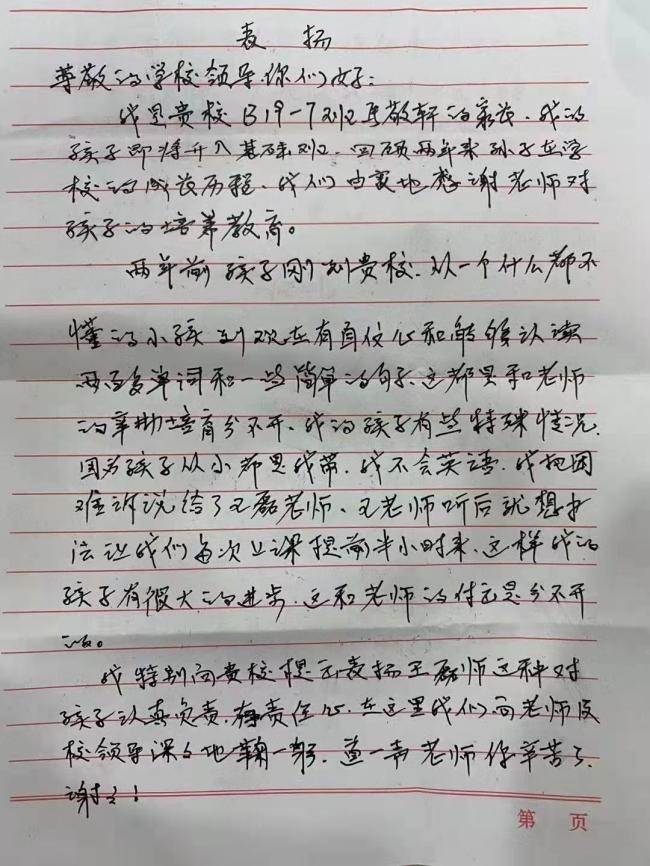 表扬
尊敬的学校领导.你们好:
我是贵校B19-7班马敬轩的家长.我的
孩子即将升入基础班.回顾两年来孙子在学
校的成长历程.我们由衷地感谢老师对
孩子的培养教育。
两年前孩子刚到贵校.从一个什么都不
懂的小孩到现在有自信心和能够认读
两百多单词和一些简单的句子.这都是和老师
的辛勤培育分不开.我的孩子有些特殊情况.
因为孩子从小都是我带.我不会英语.我把困
难诉说给了王磊老师、王老师听后就想办
法让我们每次上课提前半小时来.这样我的
孩子有很大的进步.这和老师的付出是分不开
的。
我特别向贵校提出表扬王磊师这种对
孩子认真负责.有责任心.在这里我们向老师及
校领导深深地鞠一躬.道一声老师你辛苦了.
谢谢!
第 页